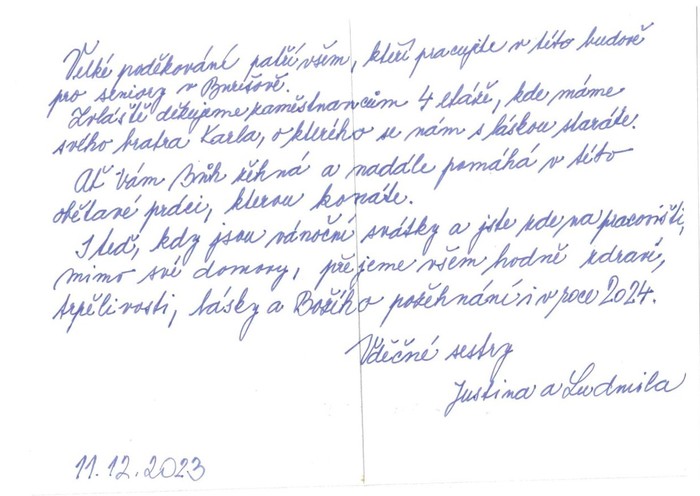 Velké poděkování patří všem, kteří pracujete v této budově
pro seniory v Burešově.
Zvláště děkujeme zaměstnancům 4 etáže, kde máme
svého bratra Karla, o kterého se nám s láskou staráte.
Ať Vám Bůh žehná a nadále pomáhá v této
obětavé práci, kterou konáte.
I teď, kdy jsou vánoční svátky a jste zde na pracovišti,
mimo své domovy, přejeme všem hodně zdraví,
trpělivosti, lásky a Božího požehnání i v roce 2024.
Vděčné sestry
Justina a Ludmila
11.12.2023